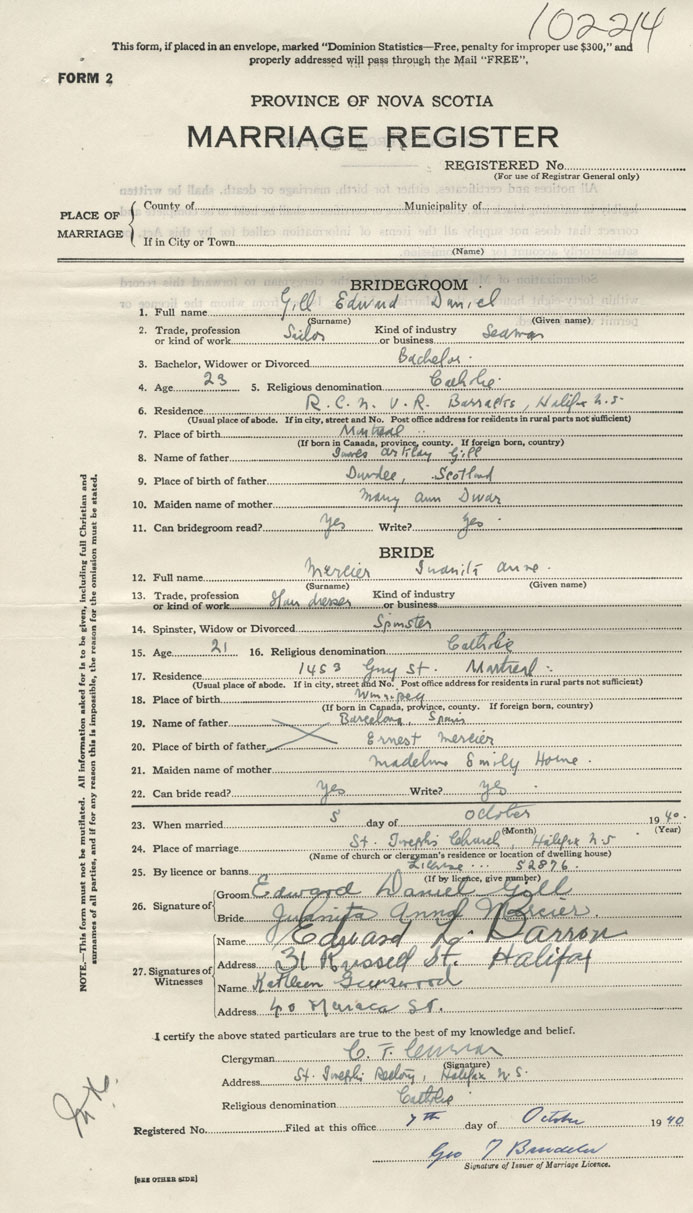 10224
This form, if placed in an envelope, marked "Dominion Statistics—Free, penalty for improper use $300," and
properly addressed will pass through the Mail "FREE".
FORM 2
PROVINCE OF NOVA SCOTIA
MARRIAGE REGISTER
REGISTERED No.
(For use of Registrar General only)
PLACE OF MARRIAGE
County of Municipality of
If in City or Town
(Name)
BRIDEGROOM
1. Full name Gill Edward Daniel
(Surname) (Given name)
2. Trade, profession or kind of work Sailor Kind of industry or business Seaman
3. Bachelor, Widower or Divorced Bachelor
4. Age 23 5. Religious denomination Catholic
6. Residence R.C.N.V.R. Barracks, Halifax N.S.
(Usual place of abode. If in city, street and No. Post office address for residents in rural parts not sufficient)
7. Place of birth Montreal
(If born in Canada, province, county. If foreign born, country)
8. Name of father James Gill
9. Place of birth of father Dundee, Scotland
10. Maiden name of mother Mary Ann
11. Can bridegroom read? Yes Write? Yes
BRIDE
12. Full name Mercier Juanita Anne
(Surname) (Given name)
13. Trade, profession or kind of work Hair dresser Kind of industry or business
14. Spinster, Widow or Divorced Spinster
15. Age 21 16. Religious denomination Catholic
17. Residence 1453 Guy St. Montreal
(Usual place of abode. If in city, street and No. Post office address for residents in rural parts not sufficient)
18. Place of birth Winnipeg
(If born in Canada, province, county. If foreign born, country)
19. Name of father Barcelona, Spain
20. Place of birth of father Ernest Mercier
21. Maiden name of mother Madeline Emily
22. Can bride read? Yes Write? Yes
23. When married 5 day of October 1940
(Month) (Year)
24. Place of marriage St. Joseph's Church, Halifax N.S.
(Name of church or clergyman's residence or location of dwelling house)
25. By licence or banns License 52876
(If by licence, give number)
26. Signature of
Groom Edward Daniel Gill
Bride Juanita Anna Mercier
27. Signatures of Witnesses
Name Edward L. Barron
Address 31 Russell St. Halifax
Name Kathleen
Address 40 St.
I certify the above stated particulars are true to the best of my knowledge and belief.
Clergyman C. F.
(Signature)
Address St. Joseph's Rectory, Halifax N.S.
Religious denomination Catholic
Registered No. Filed at this office 7th day of October 1940
Geo
Signature of Issuer of Marriage Licence.
[SEE OTHER SIDE]
NOTE.—This form must not be mutilated. All information asked for is to be given, including full Christian and
surnames of all parties, and if for any reason this is impossible, the reason for the omission must be stated.